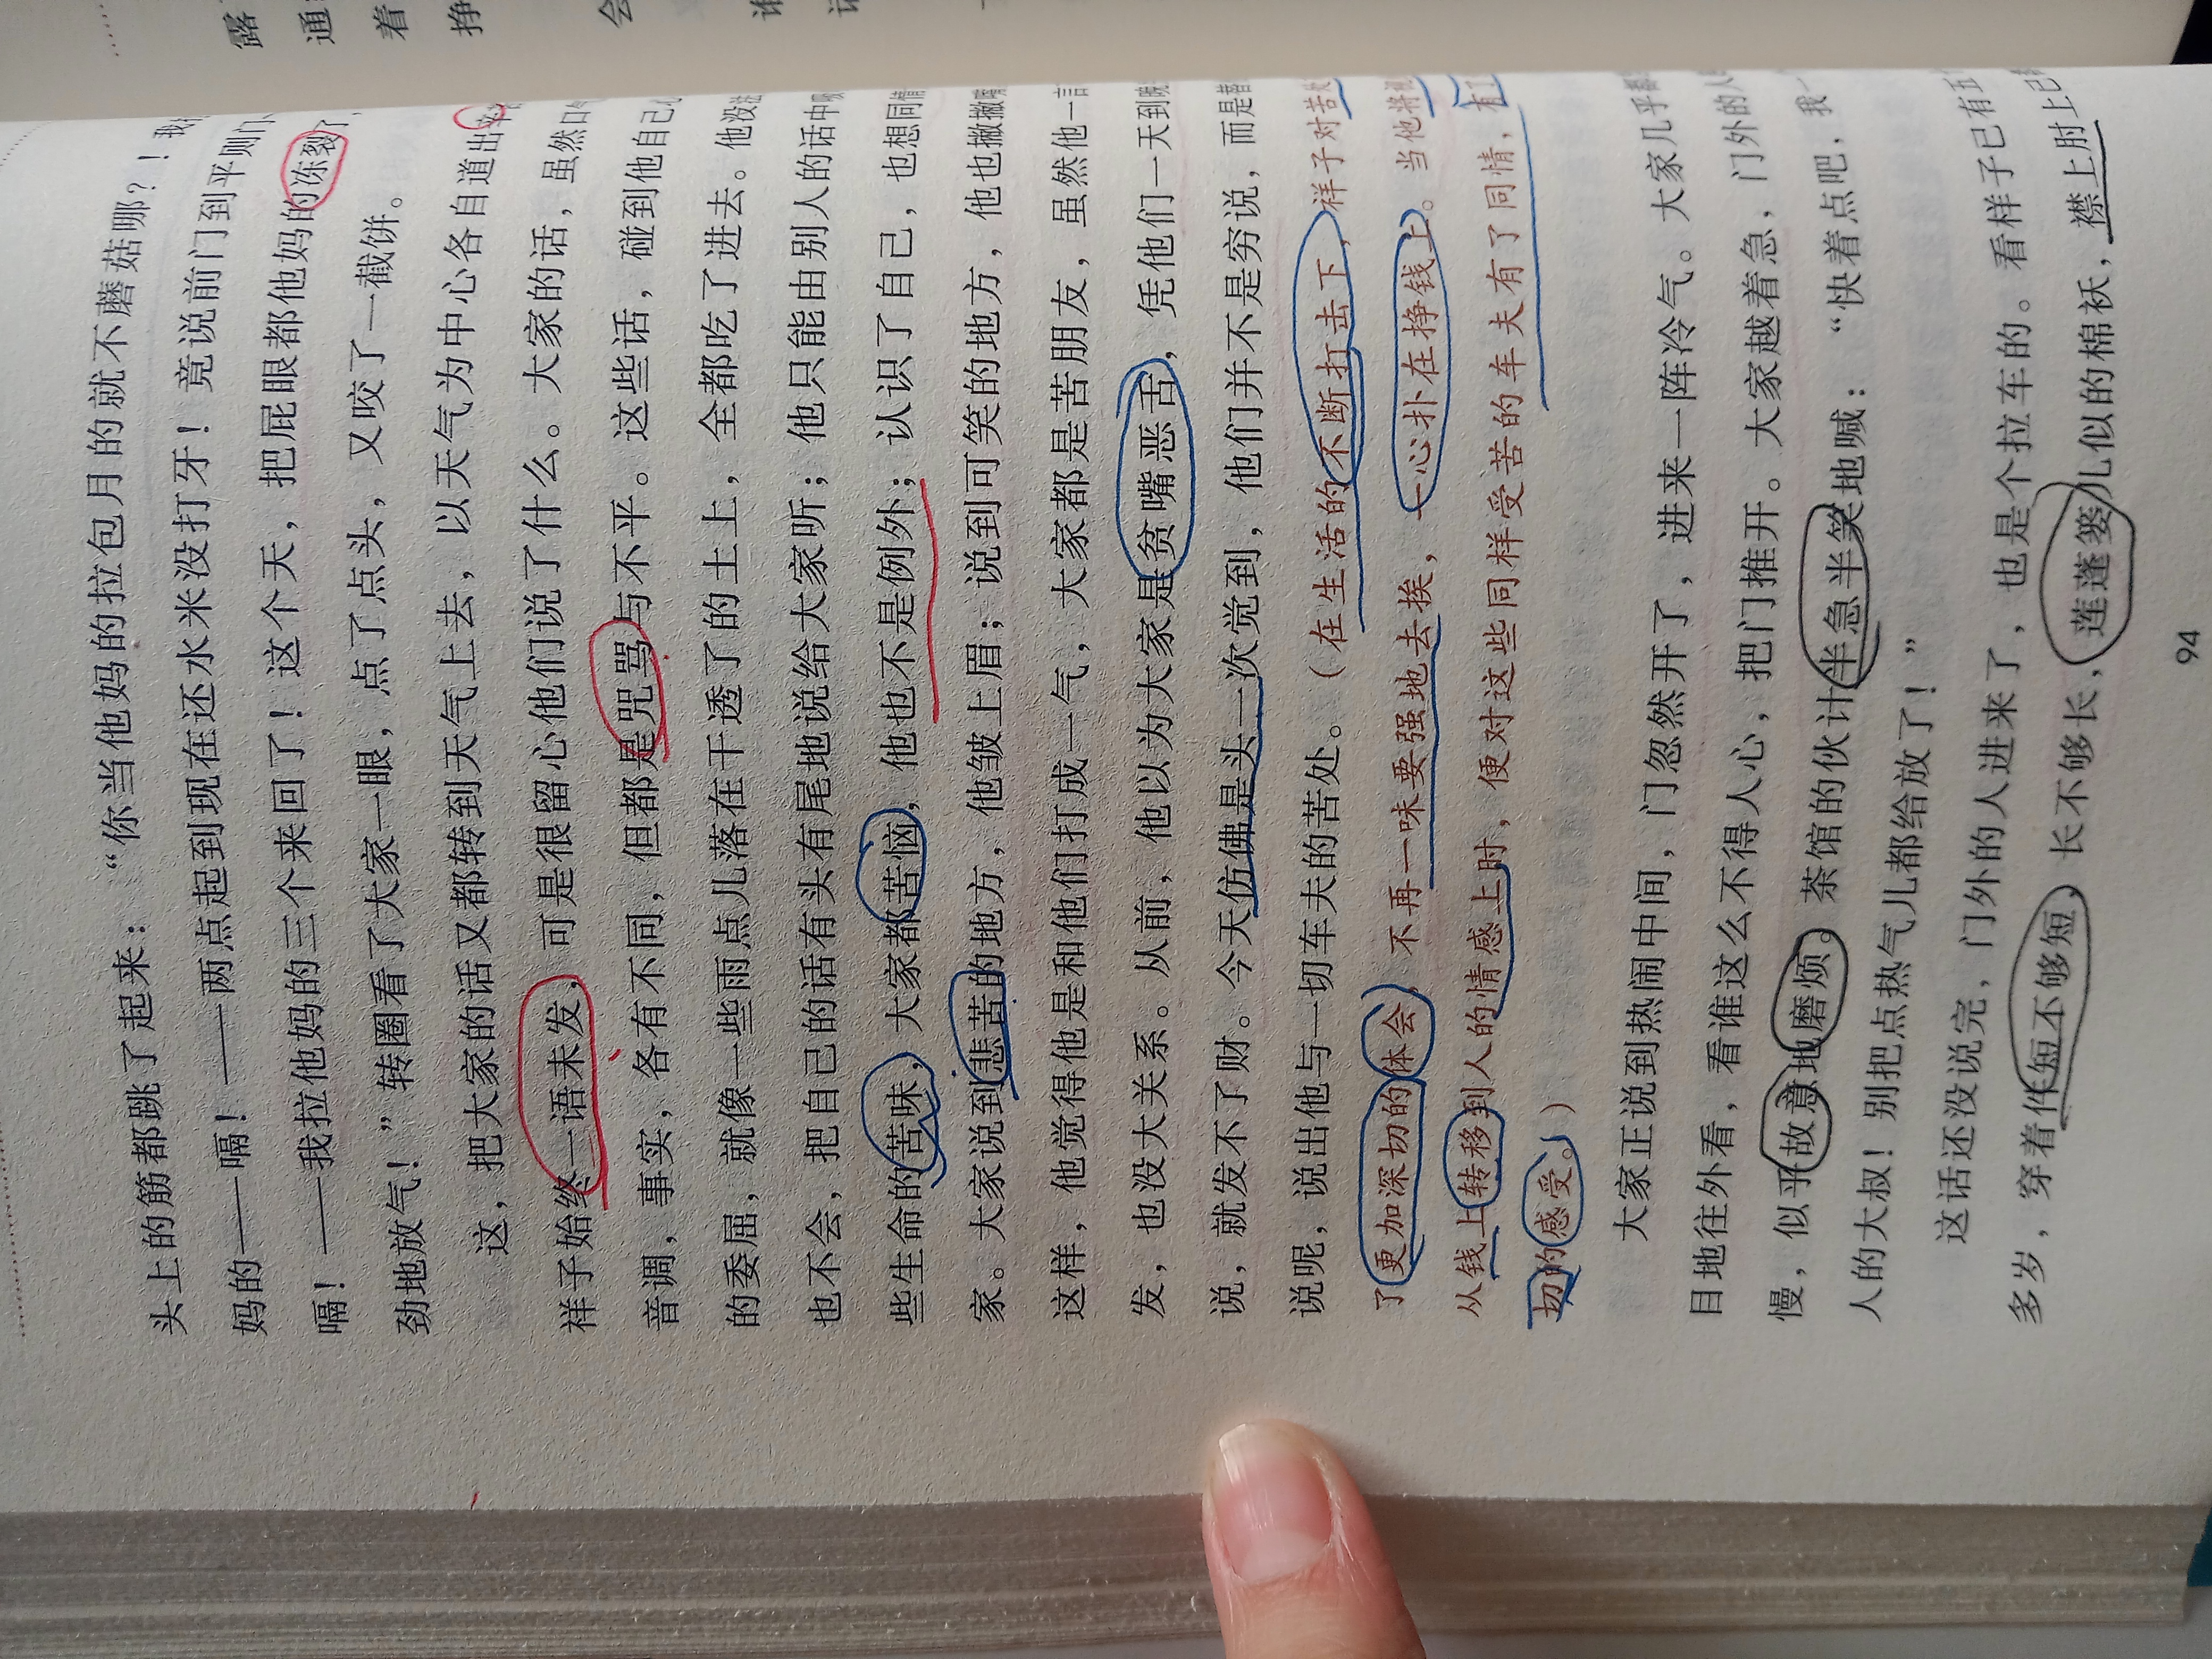 头上的筋都跳了起来：“你当他妈的拉包月的就不磨菇哪？！我
妈的——嗝！——两点起到现在还水米没打牙！竟说前门到平则门
嗝！——我拉他妈的三个来回了！这个天，把屁眼都他妈的冻裂了，
劲地放气！”转圈看了大家一眼，点了点头，又咬了一截饼。
这，把大家的话又都转到天气上去，以天气为中心各自道出辛
样子始终一语未发，可是很留心他们说了什么。大家的话，虽然口气
音调，事实，各有不同，但都是咒骂与不平。这些话，碰到他自己心
的委屈，就像一些雨点儿落在干透了的土上，全都吃了进去。他没法
也不会，把自己的话有头有尾地说给大家听；他只能由别人的话中
些生命的苦味，大家都苦恼，他也不是例外；认识了自己，也想同情
家。大家说到悲苦的地方，他皱上眉；说到可笑的地方，他也撇撇嘴
这样，他觉得他是和他们打成一气，大家都是苦朋友，虽然他一言
发，也没大关系。从前，他以为大家是贫嘴恶舌，凭他们一天到晚
说，就发不了财。今天仿佛是头一次觉到，他们并不是穷说，而是替
说呢，说出他与一切车夫的苦处。（在生活的不断打击下，祥子对苦处
了更加深切的体会，不再一味要强地去挨，一心扑在挣钱上。当他将
从钱上转移到人的情感上时，便对这些同样受苦的车夫有了同情，有了
切的感受。）
大家正说到热闹中间，门忽然开了，进来一阵冷气。大家几乎
目地往外看，看谁这么不得人心，把门推开。大家越着急，门外的人
慢，似乎故意地磨烦。茶馆的伙计半急半笑地喊：“快着点吧，我
人的大叔！别把点热气儿都给放了！”
这话还没说完，门外的人进来了，也是个拉车的。看样子已有五
多岁，穿着件短不够短，长不够长，莲蓬篓儿似的棉袄，襟上肘上已
94
露
通
着
挣
会